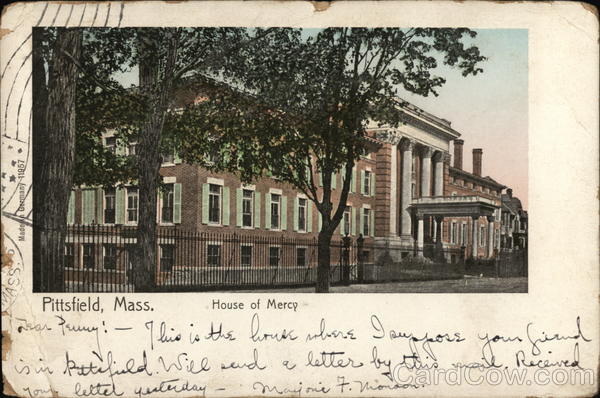 Made in Germany 11957
MASS.
Pittsfield, Mass.
House of Mercy
Dear Penny! - This is the house where I suppose your friend
is in Pittsfield. Will send a letter by this mail. Received
your letter yesterday - Marjorie F. Monson
CardCow.com